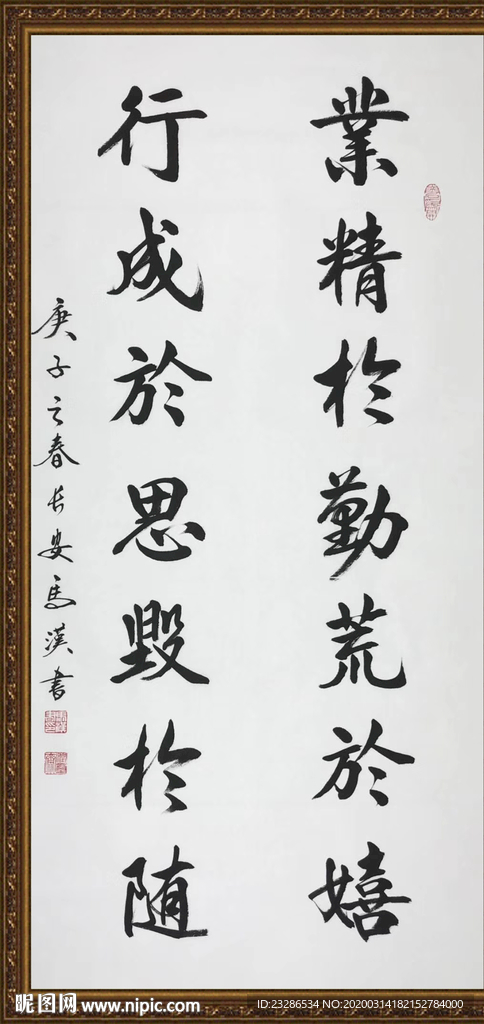 業精於勤荒於嬉
行成於思毀於随
庚子之春长安馬漢書
昵图网 www.nipic.com
ID:23286534 NO:20200314182152784000